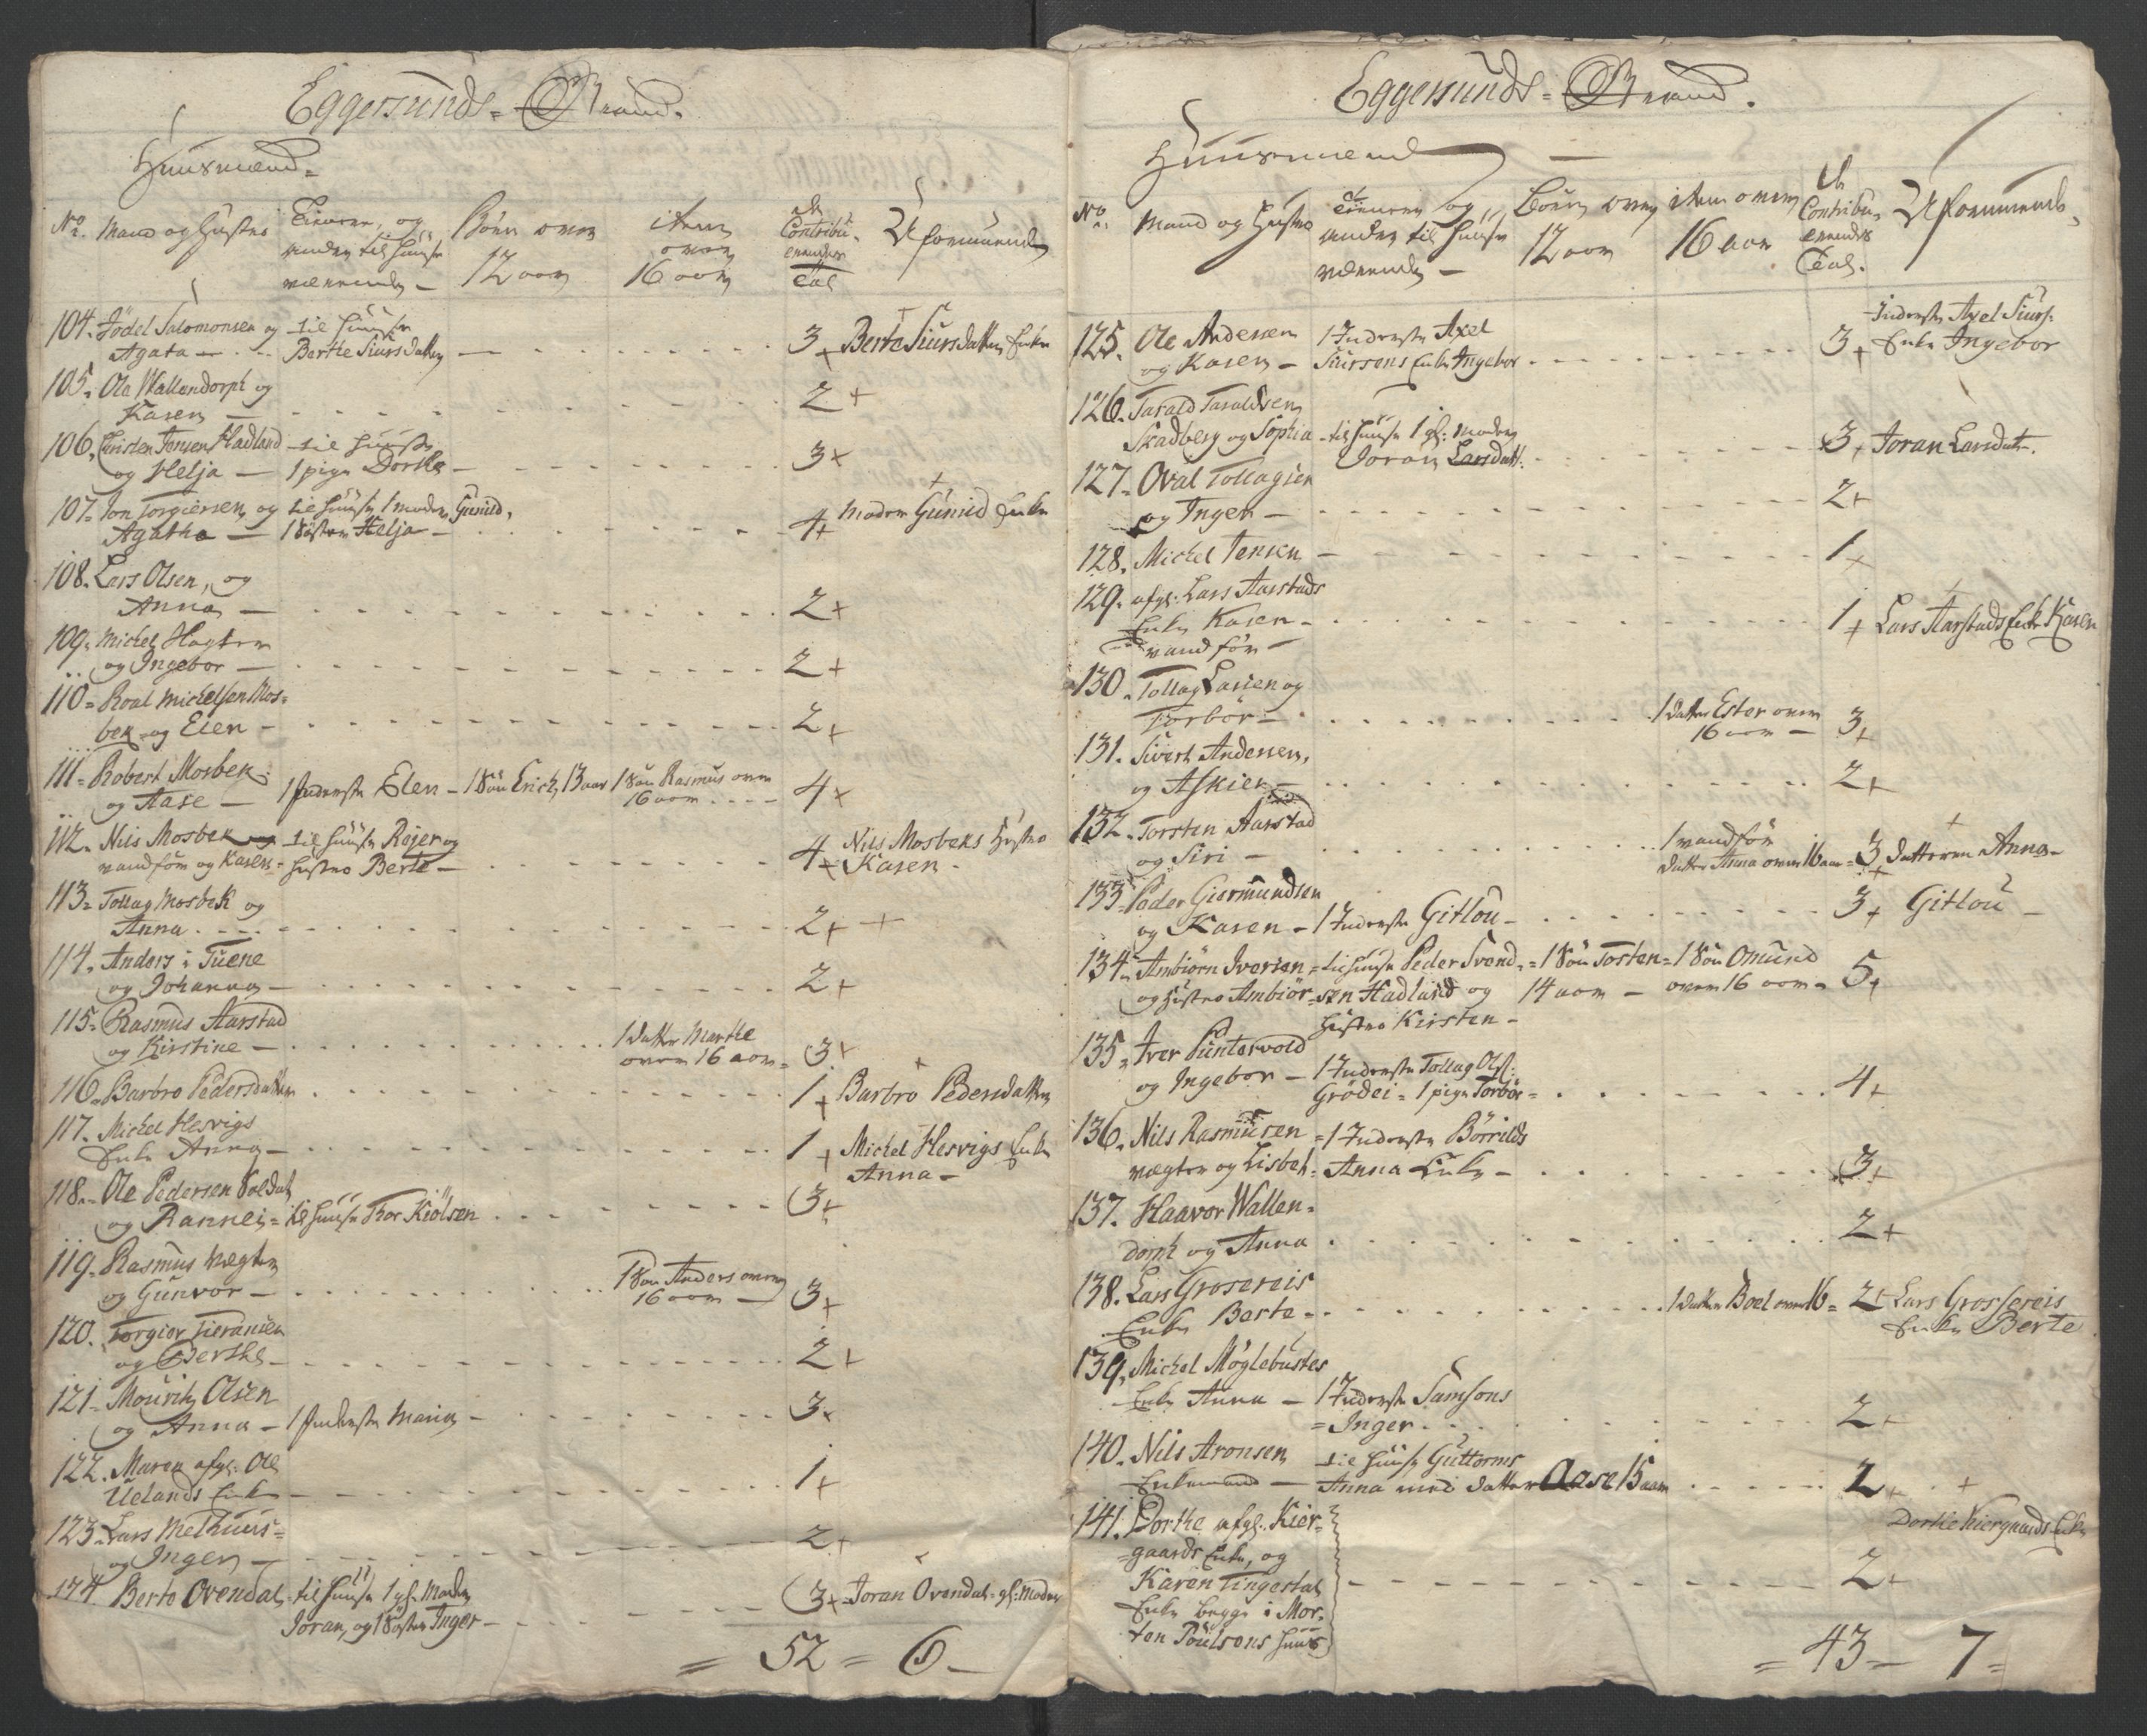 Eggersunds- Strand.
Huusmænd-
No. Mand og Hustro
Tienere, og
andre til Huuse
værende -
Børn over
12 aar
item
over
16 aar
de
Contribu-
erendes
Tal
Uformuende
104. Jödel Salomonsen og til Huuse
Agata - Berthe Siursdatter - 3 + Berte Siursdatter Enke
105. Ola Wallendorph og
Karen - 2 +
106. Christen Jensen Hadland - til Huuse
og Helja - 1 pige Dorthe - 3 +
107. Jon Torgiersen og til Huuse 1 moder Gunild,
Agatha - 1 Söster Helja - 4 + Moder Gunild Enke
108. Lars Olsen, og
Anna - 2 +
109. Michel
og Ingebor - 2 +
110. Roal Michelsen Mos-
bek og Elen - 2 +
111. Robert Mosbek
og Aase - 1 Inderste Elen - 1 Sön Erich 13 aar 1 Sön Rasmus over
16 aar - 4 +
112. Nils Mosbek til Huuse Rejer og
vanför og Karen - Hustro Berte - 4 + Nils Mosbeks Hustro
Karen -
113. Tollag Mosbek og
Anna - 2 + +
114. Anders i Tuene
og Johanna - 2 +
115. Rasmus Aarstad
og Kirstine - 1 datter Marthe
over 16 aar - 3 +
116. Barbro Pedersdatter 1 + Barbro Pedersdatter
117. Michel Hesvigs
Enke Anna - 1 + Michel Hesvigs Enke
Anna -
118. Ole Pedersen Soldat
og Rannei - til Huuse Thor Kiölsen 3 +
119. Rasmus Vægter
og Gunvor - 1 Sön Anders over
16 aar - 3 +
120. Torgier
og Berthe - 2 +
121. Mouritz Olsen
og Anna - 1 Inderste Maria - 3 +
122. Maren afgl. Ole
Uelands Enke - 1 +
123. Lars Methuus-
og Inger - 2 +
124. Berte Ovendal til Huuse 1 gl. Moder
Joran, og 1 Söster Inger - 3 + Joran Ovendal - gl: Moder
= 52 = 6 -
Eggersunds- Strand.
Huusmænd
No. Mand og Hustro
Tienere og
andre til Huuse
værende -
Börn over
12 aar
item over
16 aar
de
Contribu-
erendes
Tal.
Uformuende
125. Ole Andersen 1 Inderste Axel
og Karen - Siursens Enke Ingebor - 3 + Inderste Axel Siurs:
Enke Ingebor
126. Tarald Taraldsen
Skadberg og Sophia - til Huuse 1 gl: moder
Joran Larsdatt: 3 + Joran Larsdatr.
127. Oval Tollagsen
og Inger - 2 +
128. Michel Jensen - 1 +
129. afgl: Lars Aarstads
Enke Karen -
vanför - 1 + Lars Aarstads Enke Karen
130. Tollag Larsen og
Torbör - 1 datter Ester over
16 aar - 3 +
131. Sivert Andersen,
og Askier - 2 +
132. Torsten Aarstad
og Siri - 1 vanför
datter Anna over 16 aar = 3 + datteren Anna -
133. Peder Giermundsen
og Karen - 1 Inderste Gitlou - 3 + Gitlou -
134. Ambiörn Iversen = til Huuse Peder Svend- = 1 Sön Tosten = 1 Sön Omund
og Hustro Ambiör = sen Hadland og 14 aar - over 16 aar = 5 +
Hustro Kirsten -
135. Iver Puntervold
og Ingebor - 1 Inderste Tollag Ols:
Grödei = 1 pige Torbör = 4 +
136. Nils Rasmusen = 1 Inderste Börrilds
vægter og Lisbet = Anna Enke - 3 +
137. Haavor Wallen-
dorph og Anna 2 +
138. Lars Grosereis
Enke Berte - 1 datter Boel over 16 = 2 + Lars Grossereis
Enke Berte
139. Michel Möglebustes
Enke Anna - 1 Inderste Samsons
= Inger 2 +
140. Nils Aronsen til Huuse Guttorms
Enkemand - Anna med datter Aase 15 aar 2 + +
141. Dorthe afgl: Kier-
gaards Enke, og
Karen Tingestad
Enke begge i Mor-
ten Poulsens Huus
2 + Dorthe Kiergaards Enke
= 43 - 7 =